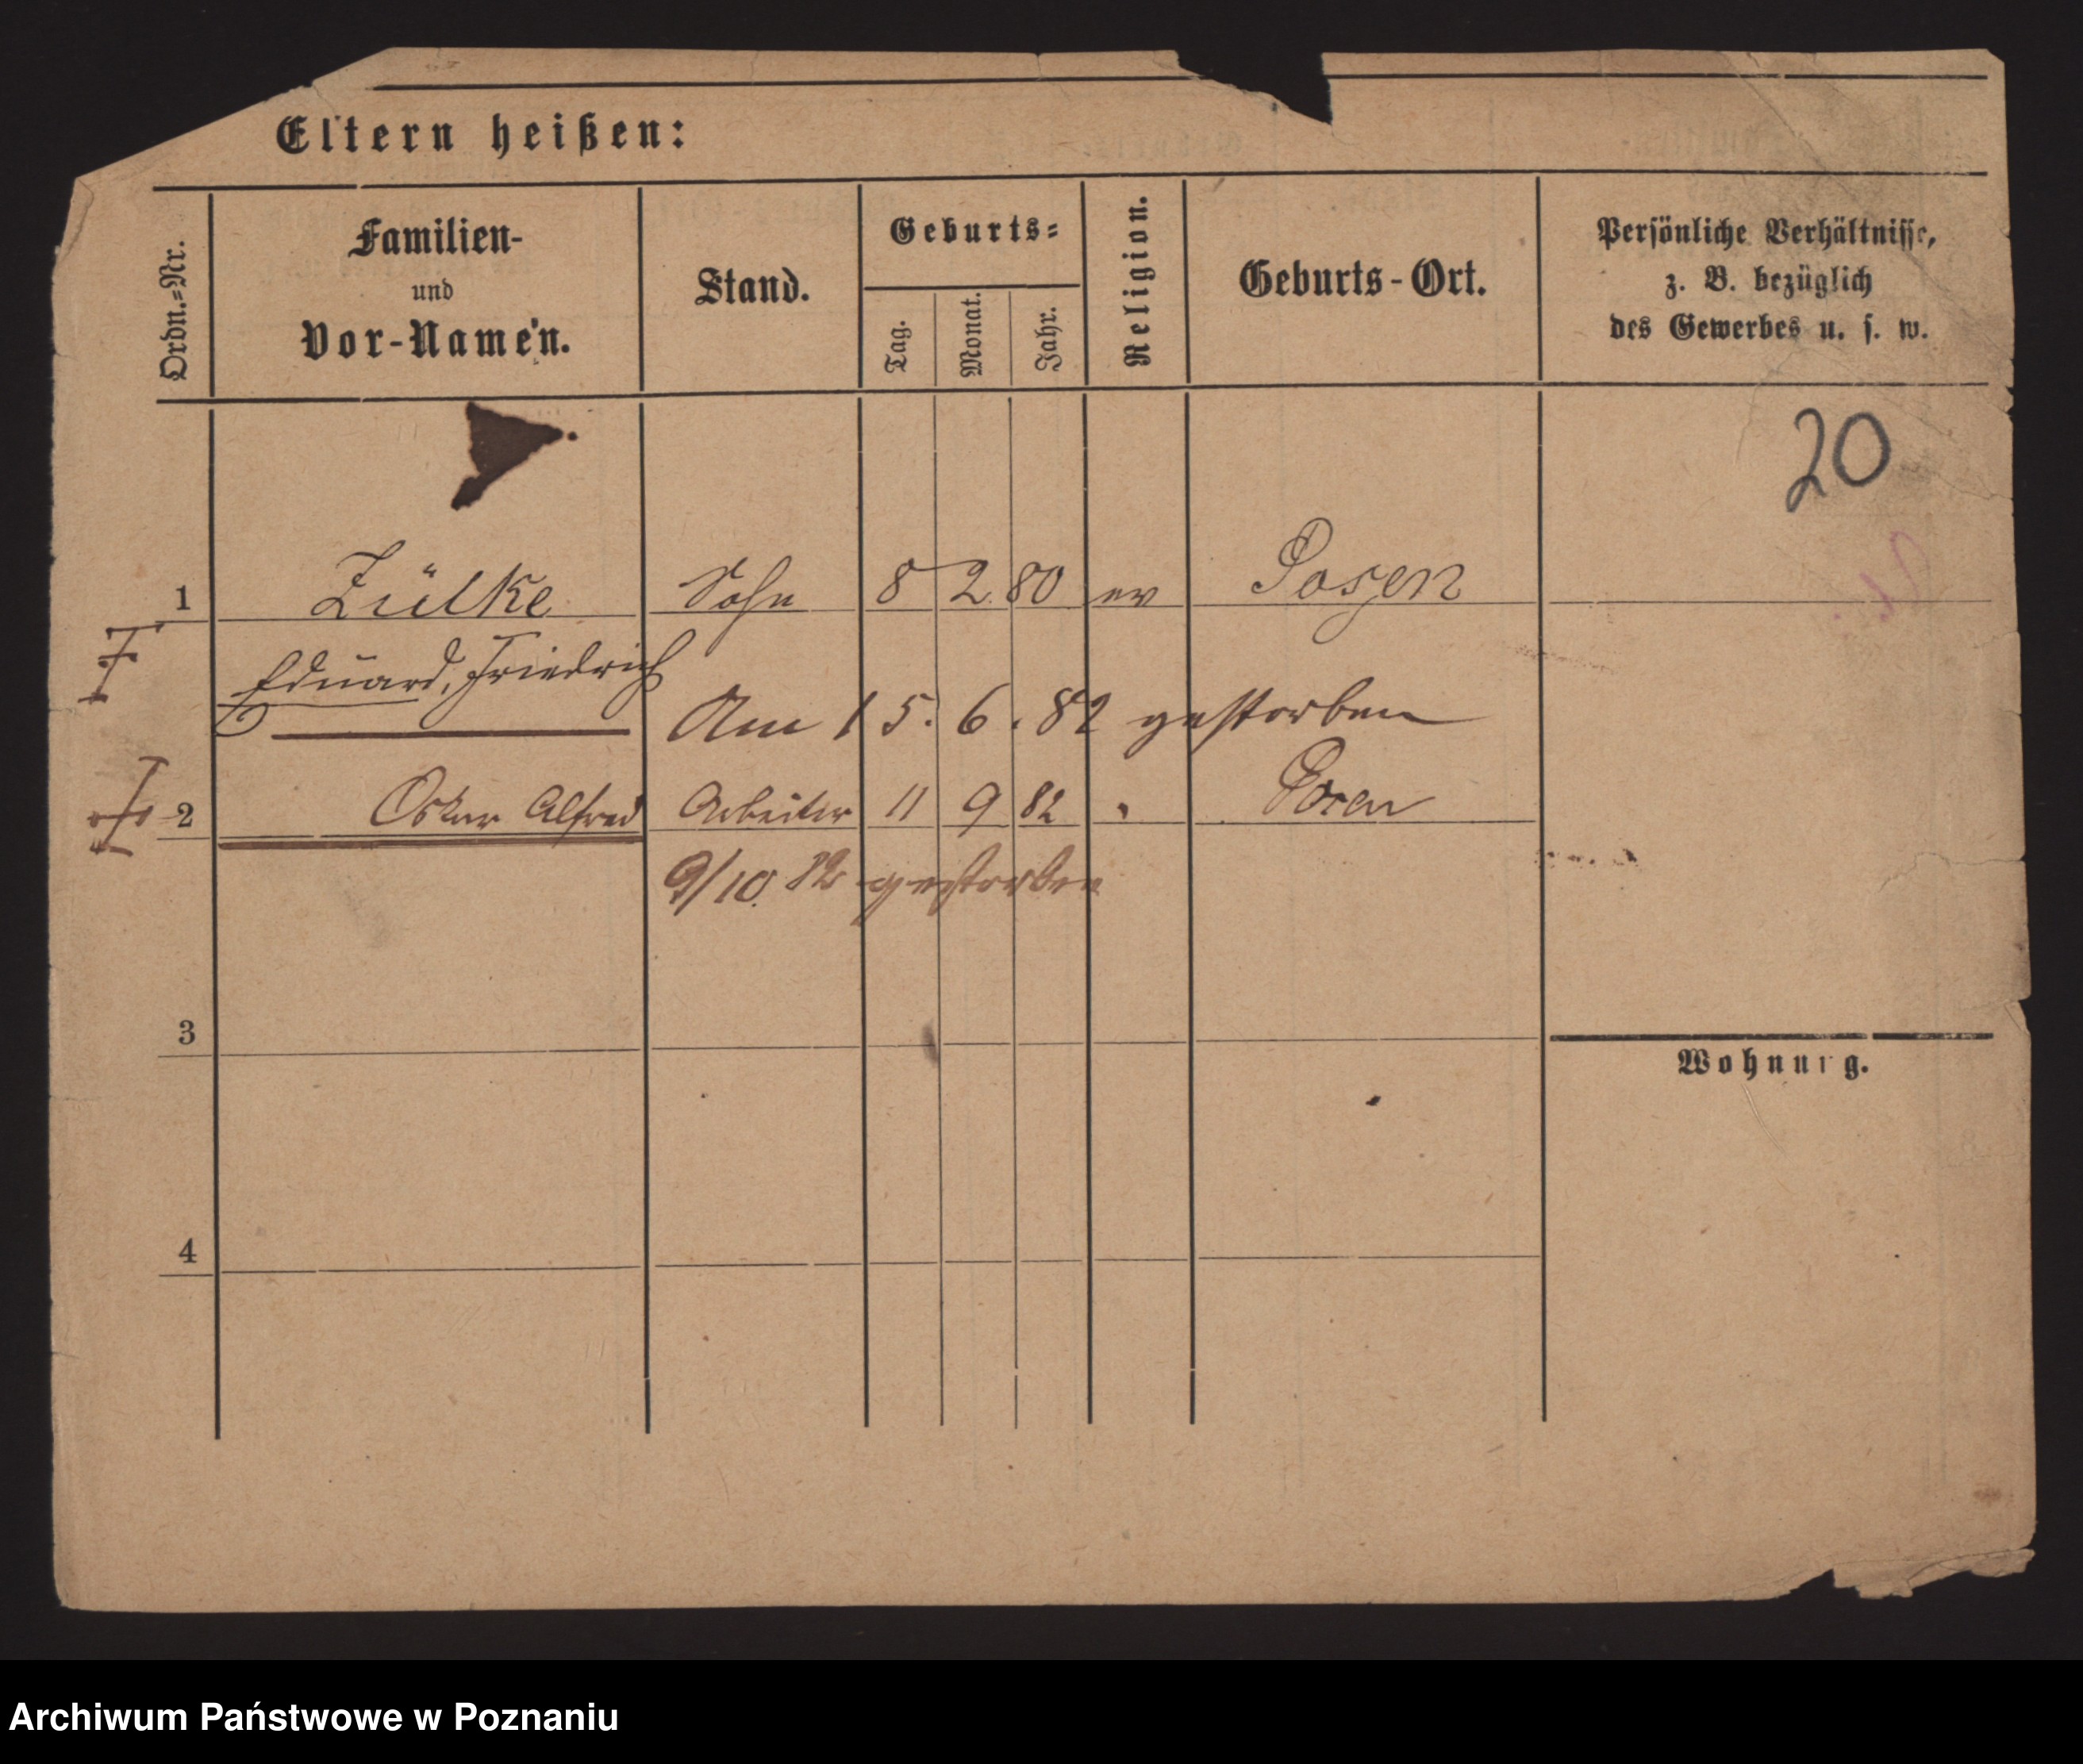 Eltern heißen:
Ordn.=Nr.
Familien-
und
Vor-Namen.
Stand.
Geburts=
Tag.
Monat.
Jahr.
Religion.
Geburts-Ort.
Persönliche Verhältnisse,
z. B. bezüglich
des Gewerbes u. s. w.
20
1 Zülke Sohn 8 2 80 ev Posen
Eduard, Friedrich
Am 15. 6. 82 gestorben
2 Oskar Alfred Arbeiter 11 9 82 " Posen
9/10. 82 gestorben
3
Wohnung.
4
Archiwum Państwowe w Poznaniu